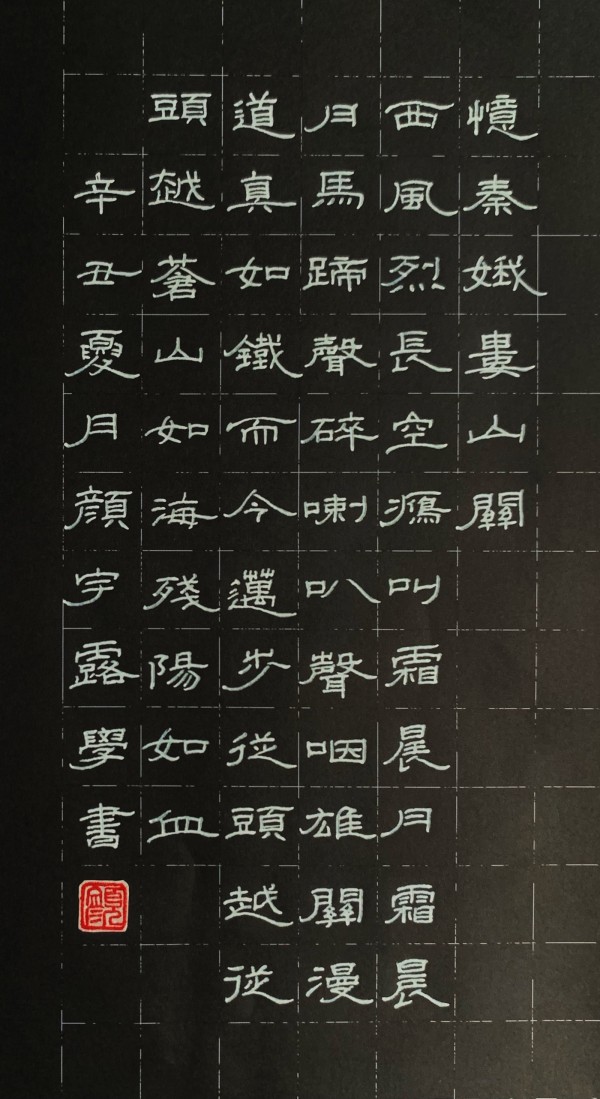 憶秦娥婁山關
西風烈長空鴈叫霜晨月霜晨
月馬蹄聲碎喇叭聲咽雄關漫
道真如鐵而今邁步從頭越從
頭越蒼山如海殘陽如血
辛丑夏月顔宇露學書
顔